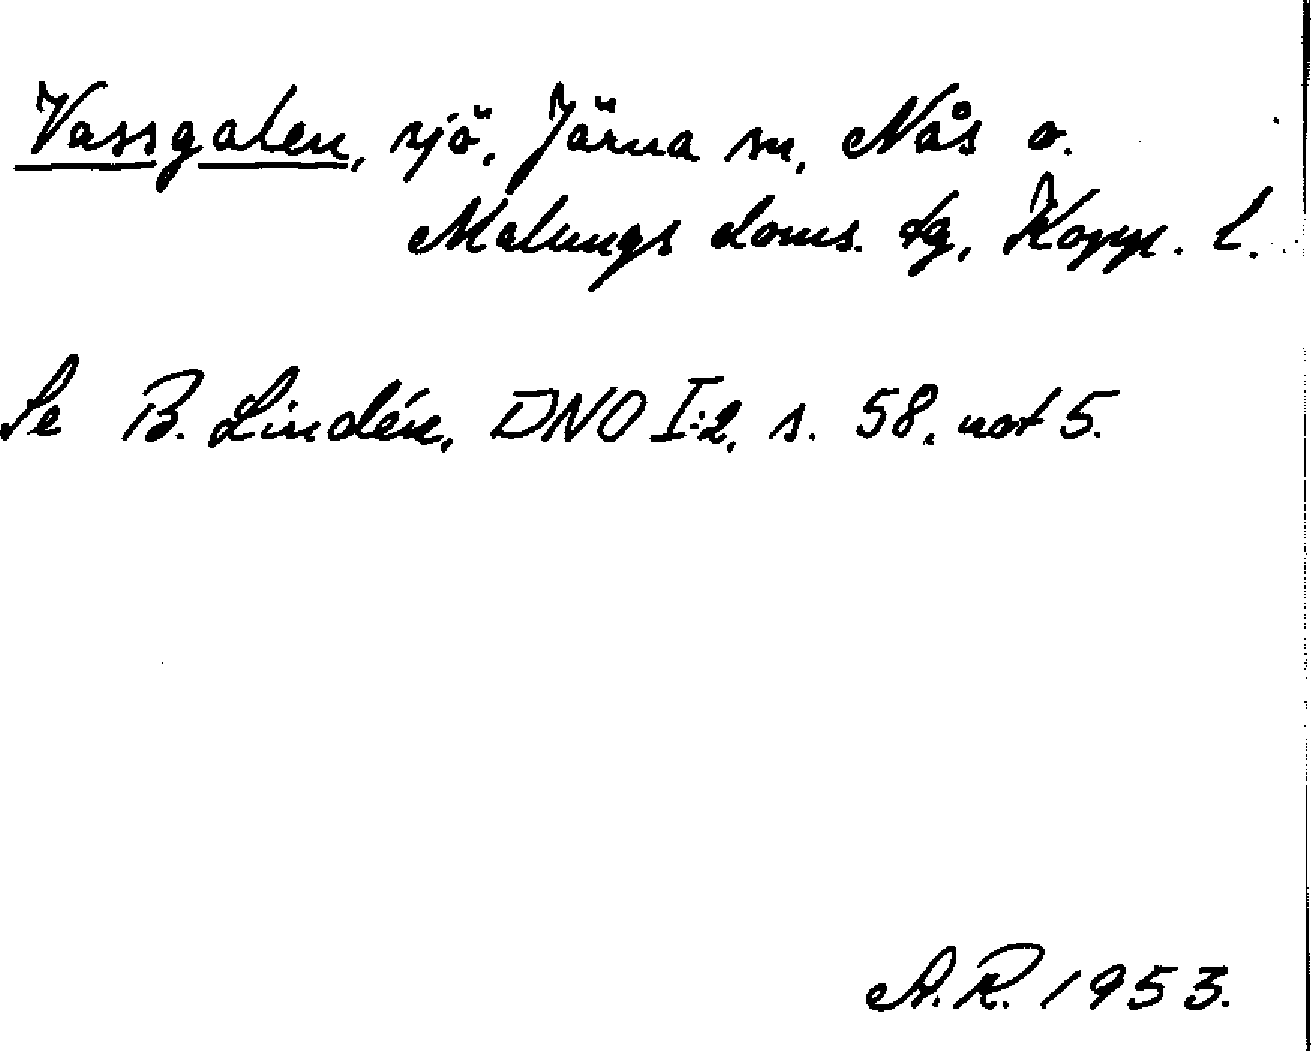 Vassgalen, sjö, Järna sn, Nås o.
Malungs doms. tg, Kopp. l.
Se B. Lindén, DNO I:2, s. 58, not 5.
A.R. 1953.